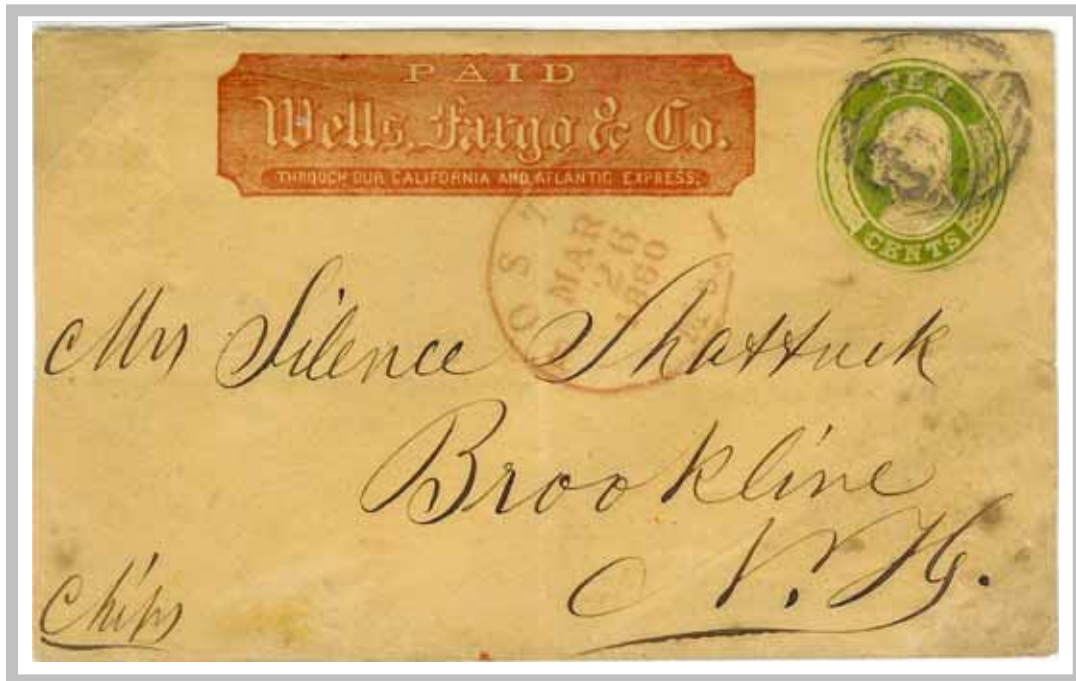 PAID
Wells, Fargo & Co.
THROUGH OUR CALIFORNIA AND ATLANTIC EXPRESS.
TEN
CENTS
MAR
26
1860
Mrs Silence Shattuck
Brookline
N. H.
Chips